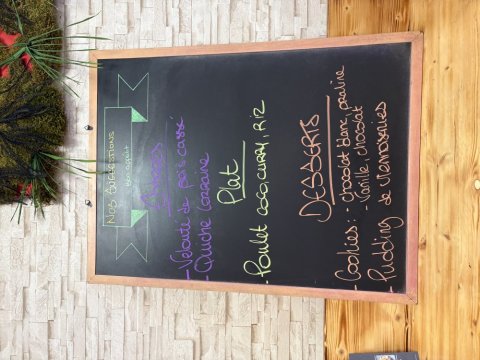 NOS SUGGESTIONS
Bon appétit
Entrées
- Velouté de pois cassé
- Quiche Lorraine
Plat
- Poulet coco, curry, riz
DESSERTS
- Cookies : - chocolat blanc, praline
- Vanille, chocolat
Pudding de viennoiseries